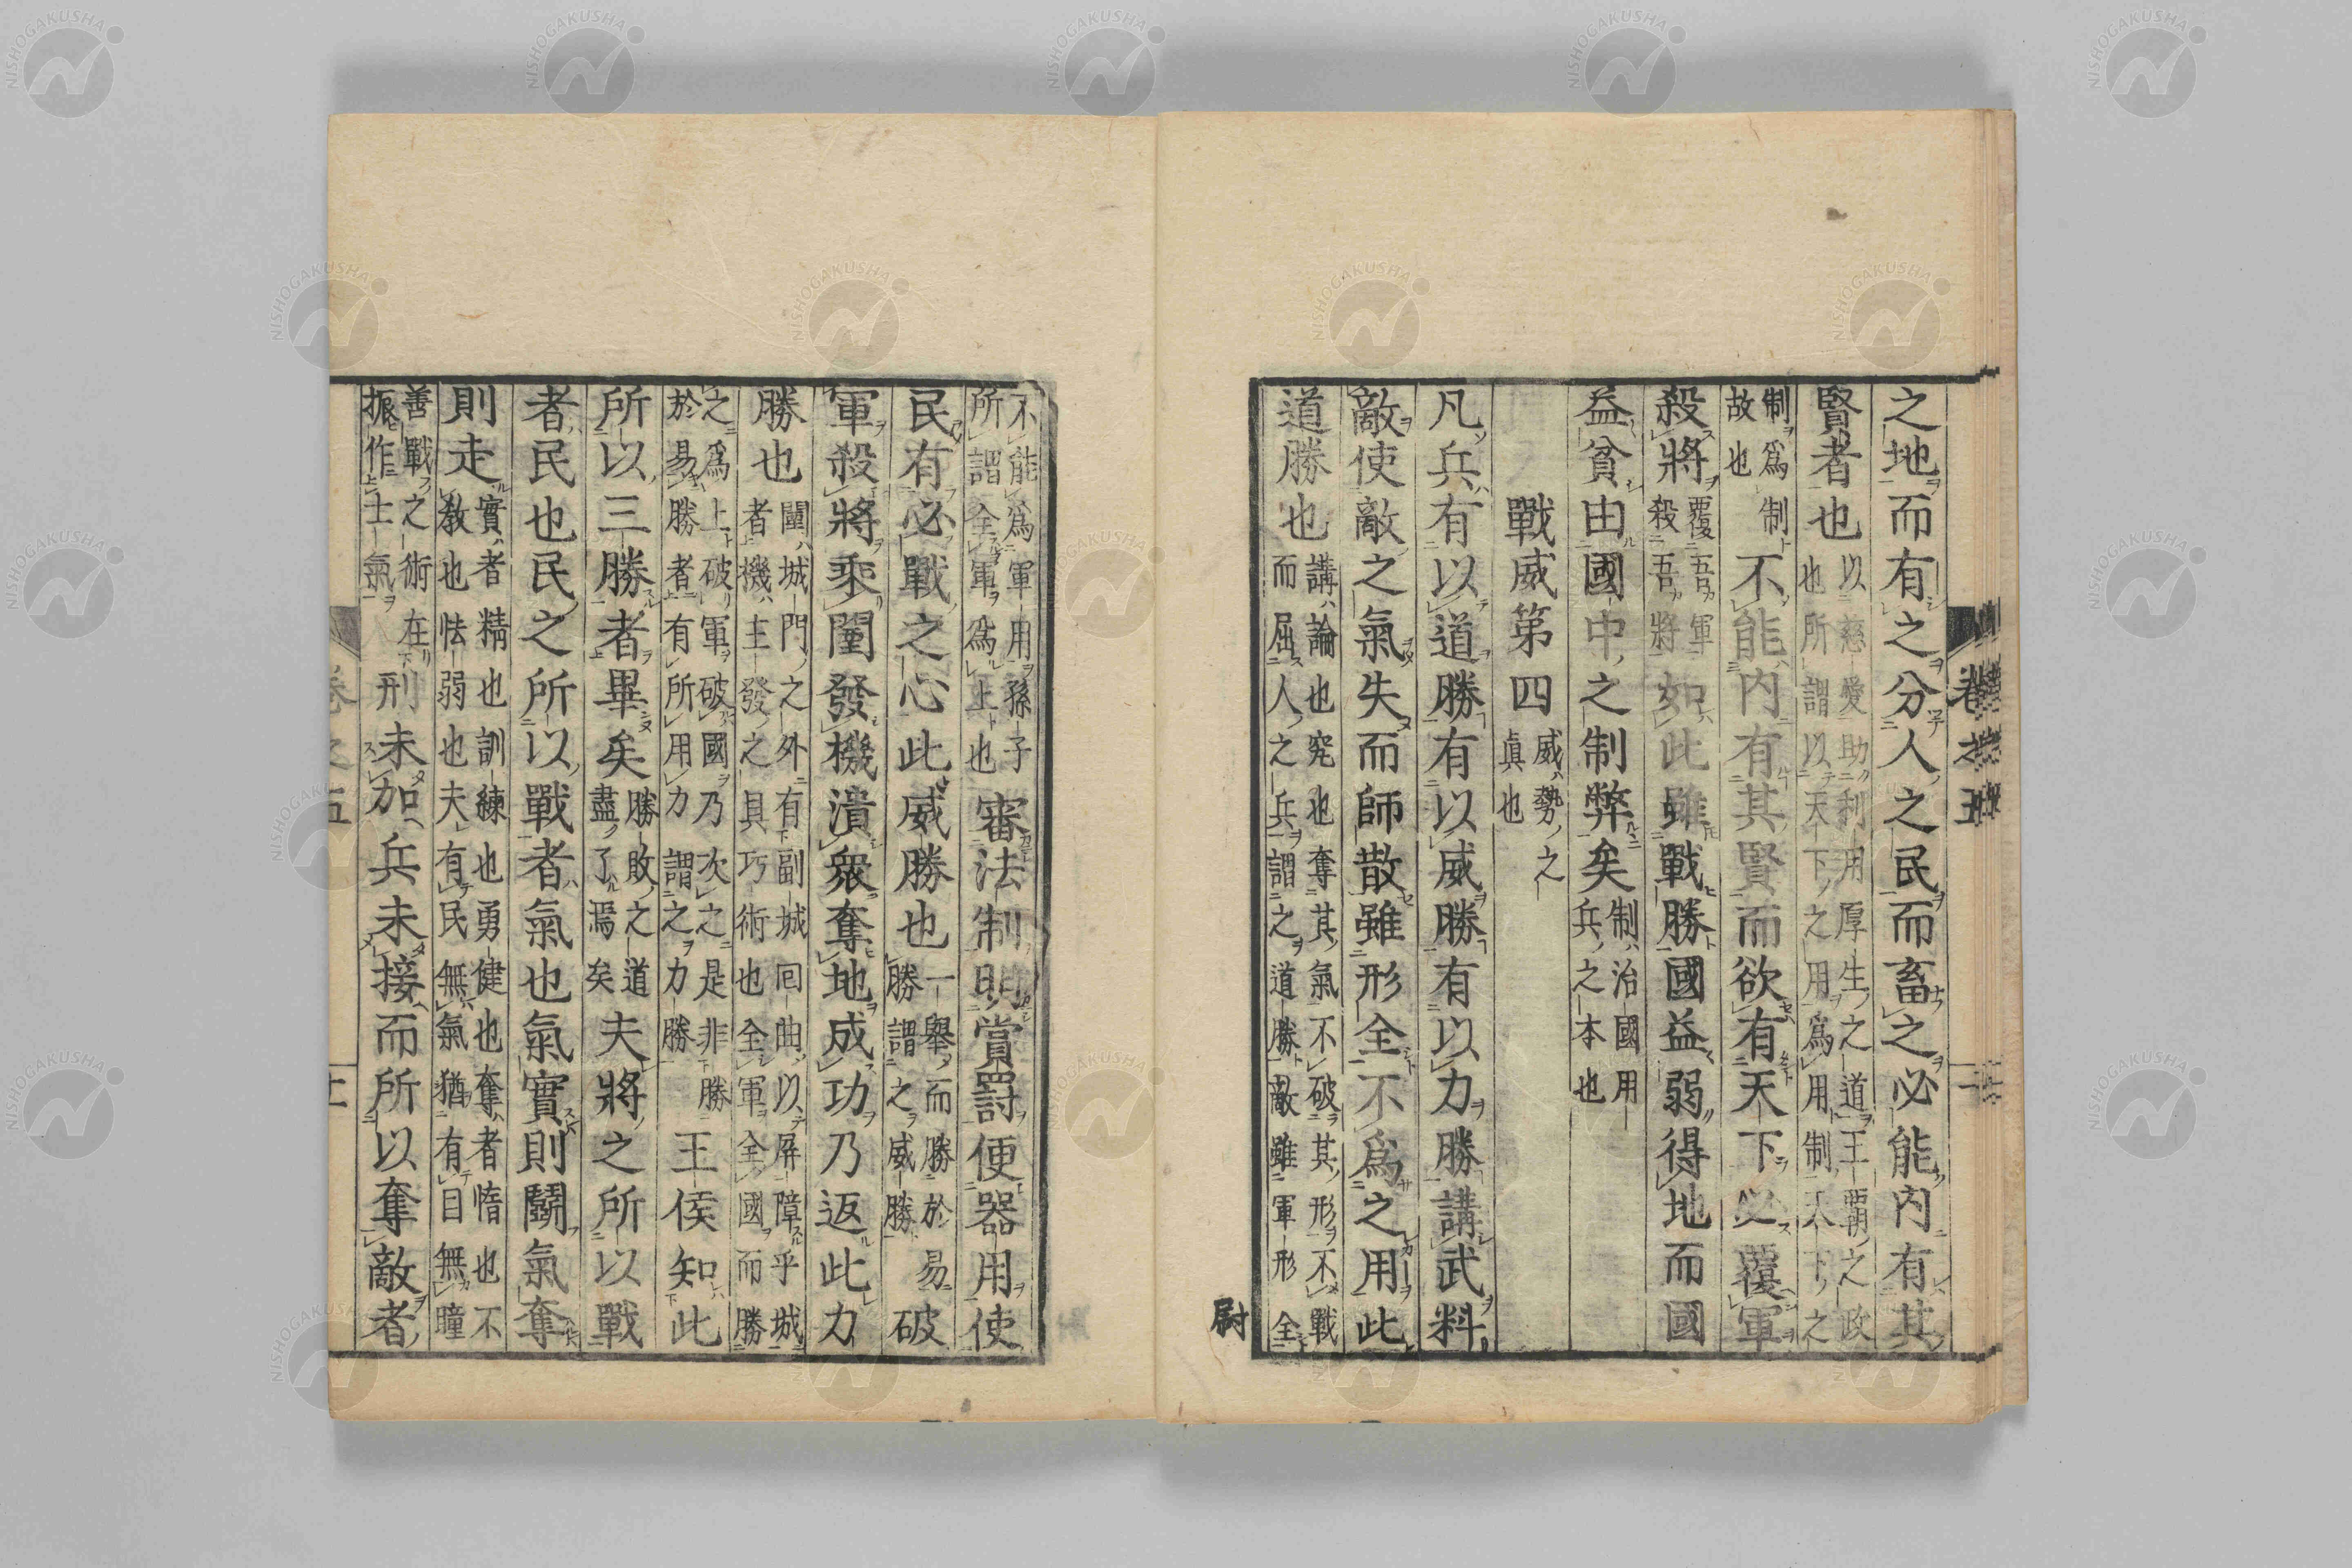 之地而有之分人之民而畜之必能內有其
賢者也以慈愛助利用厚生之道王霸之政也所謂以天下之用爲用制天下之
制爲制故也不能內有其賢而欲有天下必覆軍
殺將覆吾軍殺吾將如此雖戰勝國益弱得地而國
益貧由國中之制弊矣制治國用兵之本也
戰威第四威勢之眞也
凡兵有以道勝有以威勝有以力勝講武料
敵使敵之氣失而師散雖形全不爲之用此
道勝也講論也究也奪其氣不破其形不戰而屈人之兵謂之道勝敵雖軍形全
不能爲軍用孫子所謂全軍爲上也審法制明賞罰便器用使
民有必戰之心此威勝也一舉而勝於易勝謂之威勝破
軍殺將乘闉發機潰衆奪地成功乃返此力
勝也闉城門之外有副城回曲以屛障乎城者機主發之具巧術也全軍全國而勝
之爲上破軍破國乃次之是非勝於易勝者有所用力謂之力勝王侯知此
所以三勝者畢矣勝敗之道盡了焉矣夫將之所以戰
者民也民之所以戰者氣也氣實則鬪氣奪
則走實者精也訓練也勇健也奪者惰也不敎也怯弱也夫有民無氣猶有目無瞳
善戰之術在振作士氣刑未加兵未接而所以奪敵者
卷之五
二
卷之五
尉